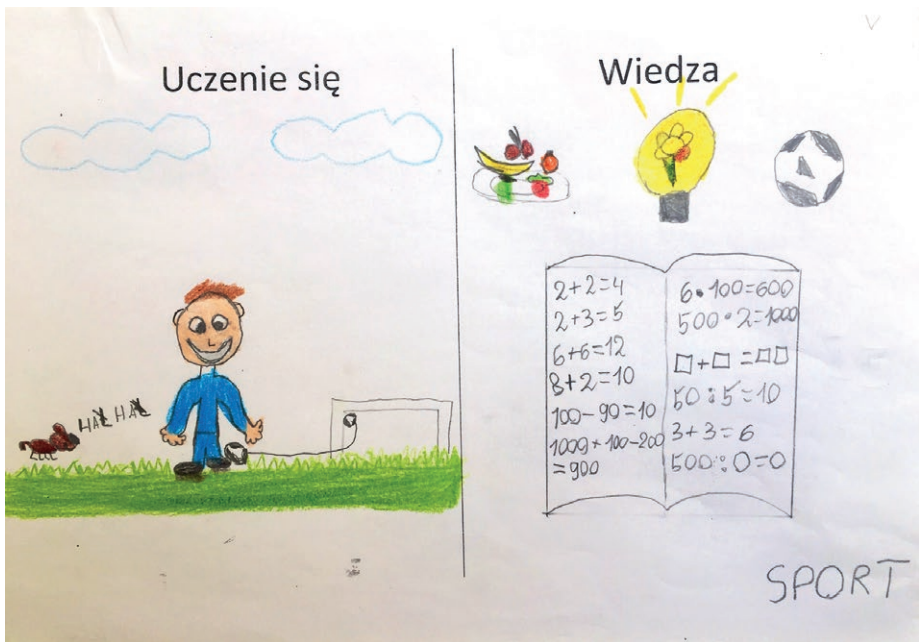 Uczenie się
HAŁ HAŁ
Wiedza
2+2=4
2+3=5
6+6=12
8+2=10
100-90=10
1000+100-200
=900
6•100=600
500•2=1000
□+□=□□
50:5=10
3+3=6
500:0=0
SPORT